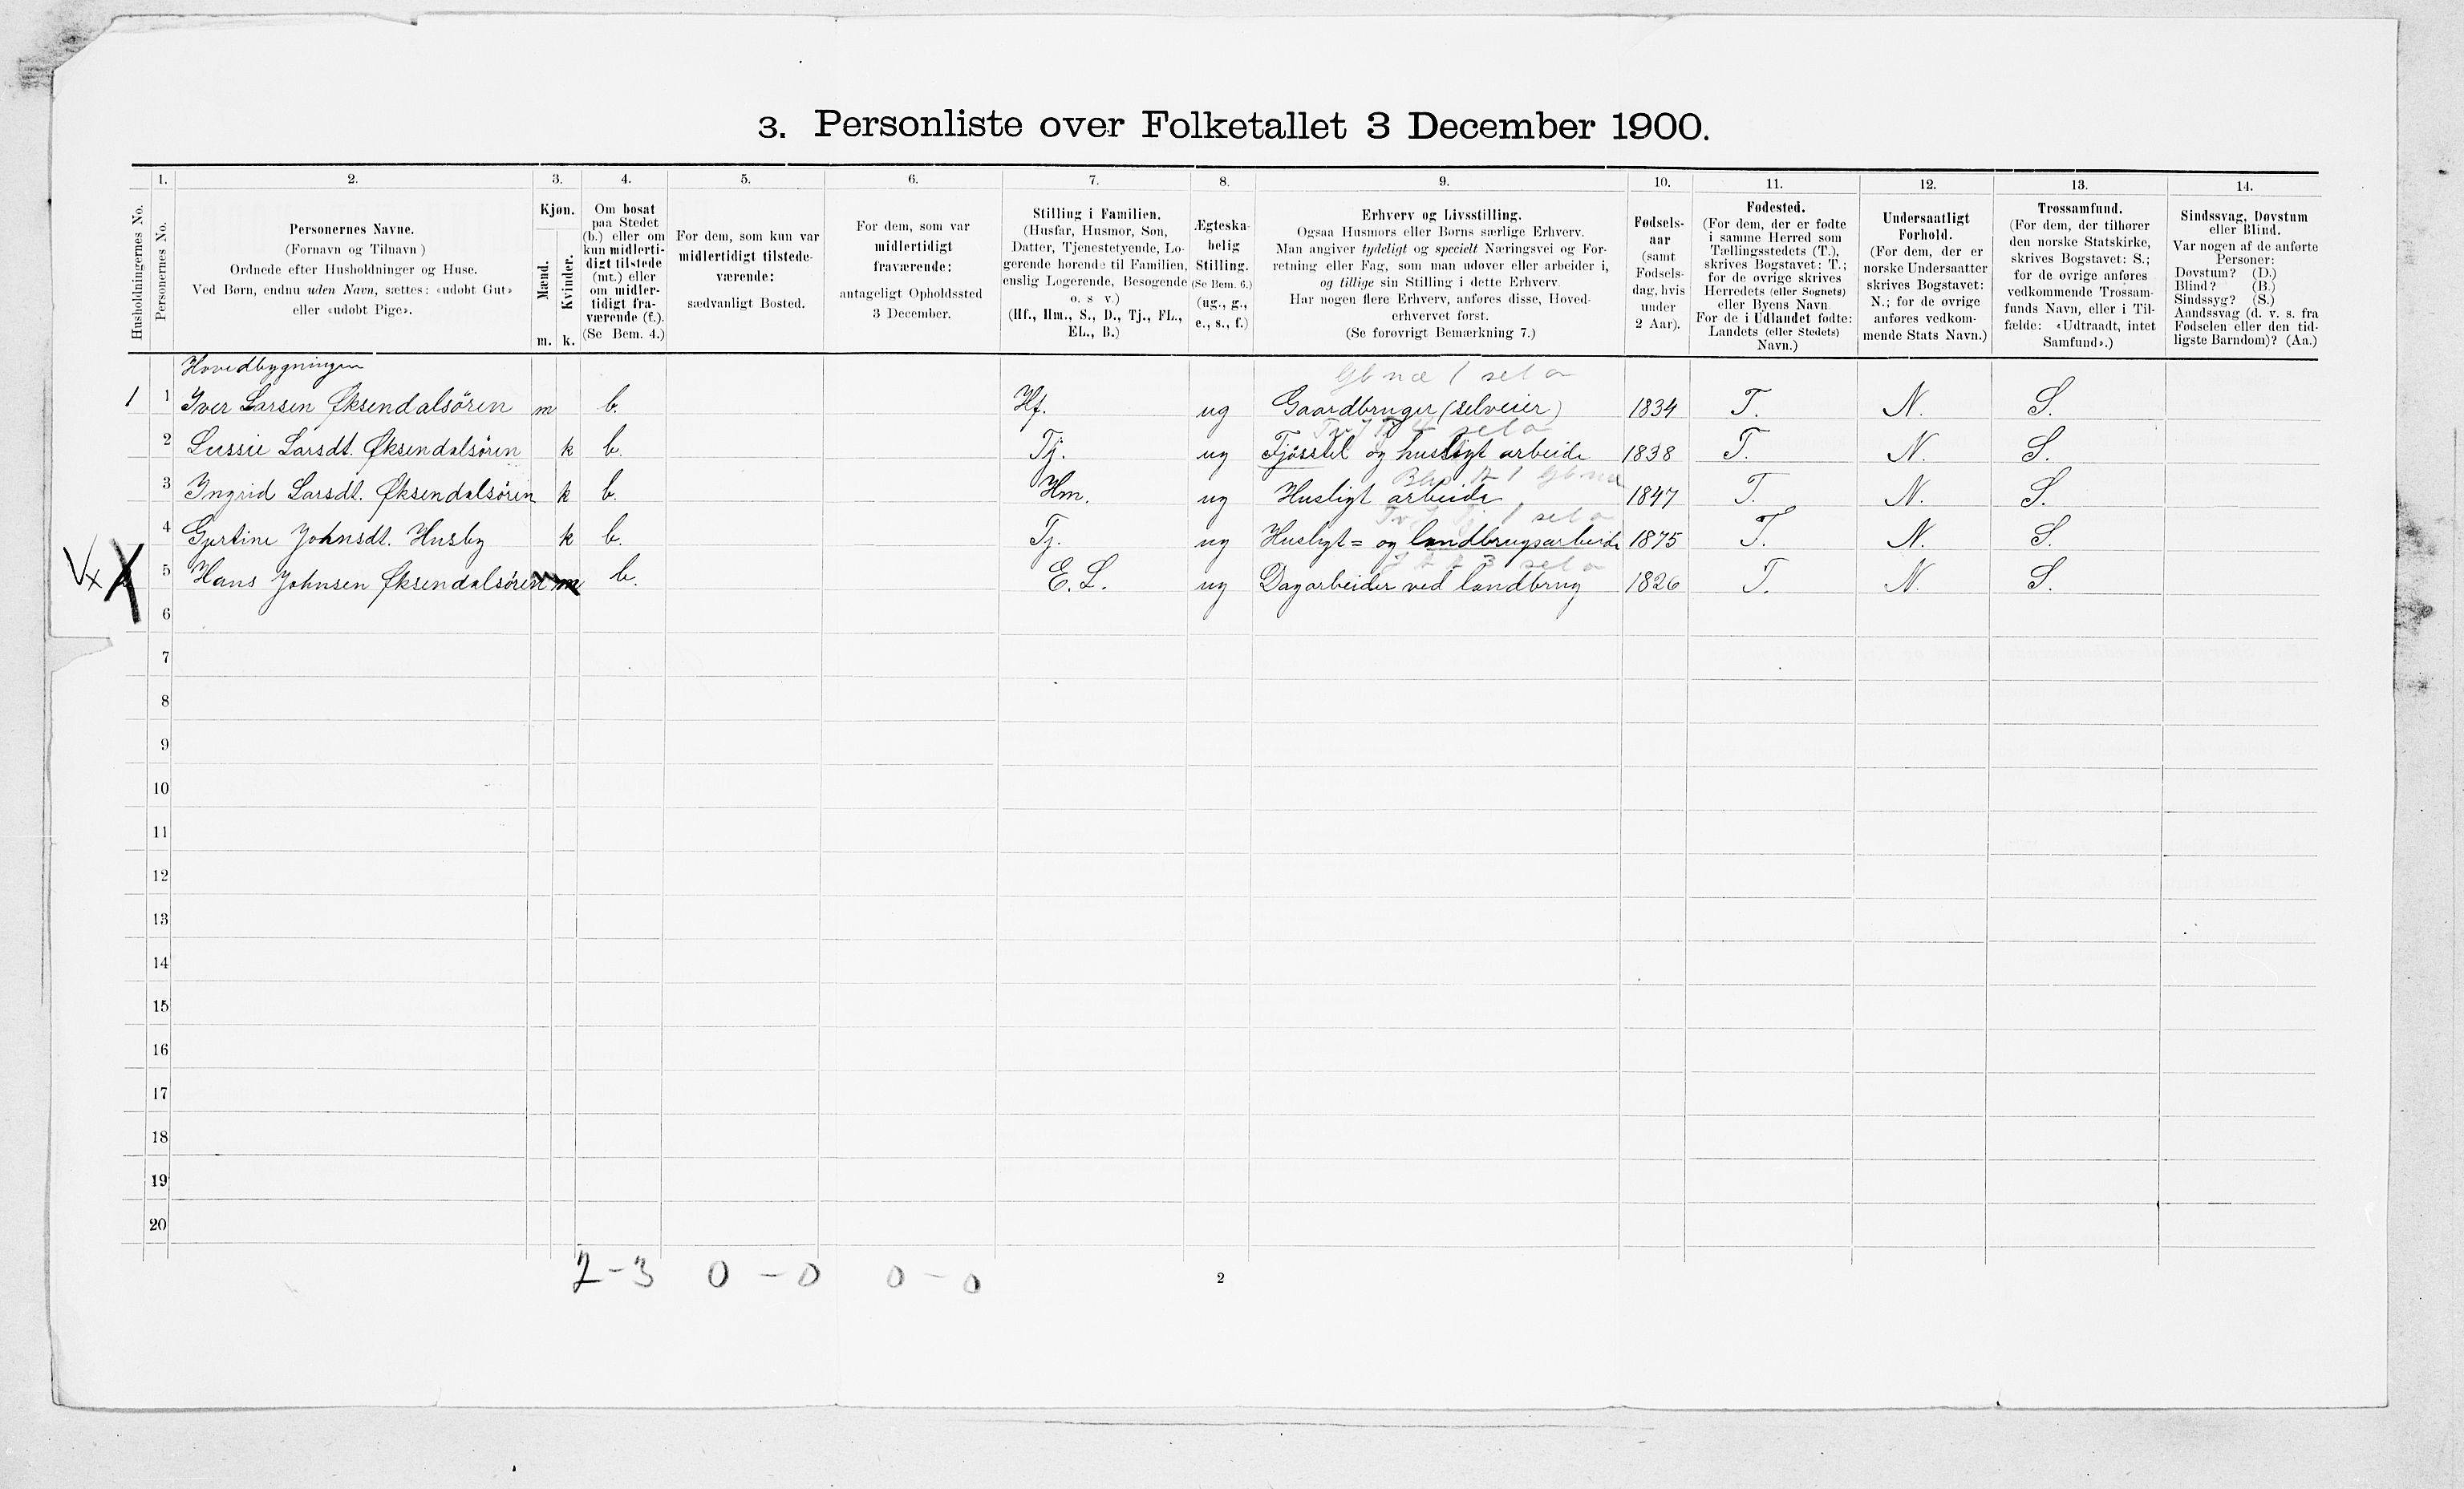 3. Personliste over Folketallet 3 December 1900.
1. 2. 3. 4. 5. 6. 7. 8. 9. 10. 11. 12. 13. 14.
Husholdningernes No.
Personernes No.
Personernes Navne.
(Fornavn og Tilnavn)
Ordnede efter Husholdninger og Huse.
Ved Børn, endnu uden Navn, sættes: «udøbt Gut»
eller «udøbt Pige».
Kjøn.
Mænd.
Kvinder.
m. k.
Om bosat
paa Stedet
(b.) eller om
kun midlerti-
digt tilstede
(mt.) eller
om midler-
tidigt fra-
værende (f.).
(Se Bem. 4.)
For dem, som kun var
midlertidigt tilstede-
værende:
sædvanligt Bosted.
For dem, som var
midlertidigt
fraværende:
antageligt Opholdssted
3 December.
Stilling i Familien.
(Husfar, Husmor, Søn,
Datter, Tjenestetyende, Lo-
gerende hørende til Familien,
enslig Logerende, Besøgende
o. s v.)
(Hf., Hm., S., D., Tj., FL.,
EL., B.)
Ægteska-
belig
Stilling.
(Se Bem. 6.)
(ug., g.,
e., s., f.)
Erhverv og Livsstilling.
Ogsaa Husmors eller Børns særlige Erhverv.
Man angiver tydeligt og specielt Næringsvei og For-
retning eller Fag, som man udøver eller arbeider i,
og tillige sin Stilling i dette Erhverv.
Har nogen flere Erhverv, anføres disse, Hoved-
erhvervet først.
(Se forøvrigt Bemærkning 7.)
Fødsels-
aar
(samt
Fødsels-
dag, hvis
under
2 Aar).
Fødested.
(For dem, der er fødte
i samme Herred som
Tællingsstedets (T.),
skrives Bogstavet: T.;
for de øvrige skrives
Herredets (eller Sognets)
eller Byens Navn
For de i Udlandet fødte:
Landets (eller Stedets)
Navn.)
Undersaatligt
Forhold.
(For dem, der er
norske Undersaatter
skrives Bogstavet:
N.; for de øvrige
anføres vedkom-
mende Stats Navn.)
Trossamfund.
(For dem, der tilhører
den norske Statskirke,
skrives Bogstavet: S.;
for de øvrige anføres
vedkommende Trossam-
funds Navn, eller i Til-
fælde: «Udtraadt, intet
Samfund».)
Sindssvag, Døvstum
eller Blind.
Var nogen af de anførte
Personer:
Døvstum? (D.)
Blind? (B.)
Sindssyg? (S.)
Aandssvag (d. v. s. fra
Fødselen eller den tid-
ligste Barndom)? (Aa.)
Hovedbygningen
1 1 Iver Larsen Øksendalsören m b. Hf. ug Gaardbruger (selveier) 1834 T. N. S.
2 Lussie Larsdt. Øksendalsören k b. Tj. ug Fjösstel og husligt arbeide 1838 T. N. S.
3 Ingrid Larsdt. Øksendalsören k b. Hm. ug Husligt arbeide 1847 T. N. S.
4 Gjertine Johnsdt. Husby k b. Tj. ug Husligt= og landbrugsarbeide 1875 T. N. S.
X 5 Hans Johnsen Øksendalsören m b. E. L. ug Dagarbeider ved landbrug 1826 T. N. S.
6
7
8
9
10
11
12
13
14
15
16
17
18
19
20
2-3 0-0 0-0
2